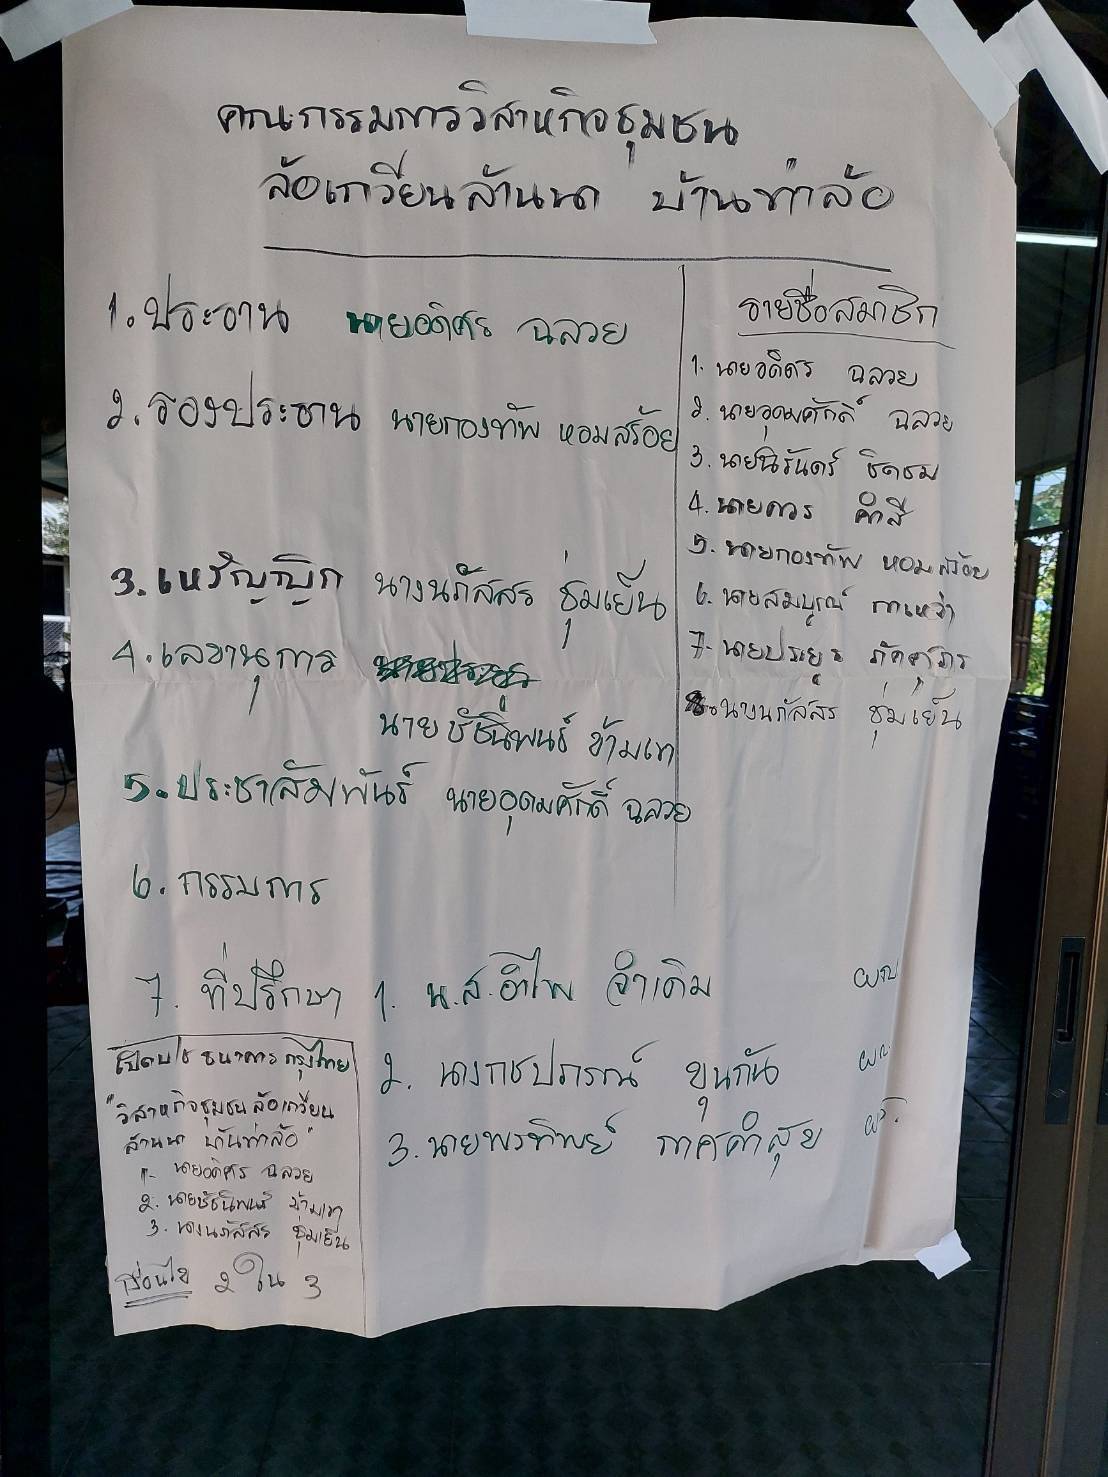 คณะกรรมการวิสาหกิจชุมชน
ล้อเกวียนล้านนา บ้านท่าล้อ
1. ประธาน นายอดิศร ฉลวย
2. รองประธาน นายกองทัพ หอมสร้อย
3. เหรัญญิก นางนภัสสร ชุ่มเย็น
4. เลขานุการ
นายชัชนิพนธ์ ข้ามเขา
5. ประชาสัมพันธ์ นายอุดมศักดิ์ ฉลวย
6. กรรมการ
7. ที่ปรึกษา 1. น.ส.อำไพ จำเดิม
2. นางกชปภรณ์ ขุนกัน
3. นายพรทิพย์ กาศคำสุข
รายชื่อสมาชิก
1. นายอดิศร ฉลวย
2. นายอุดมศักดิ์ ฉลวย
3. นายนิรันดร์ ชิดชม
4. นายถาวร คำสี
5. นายกองทัพ หอมสร้อย
6. นายสมบูรณ์ กาเหว่า
7. นายประยูร
8. นางนภัสสร ชุ่มเย็น
เปิดบ/ช ธนาคารกรุงไทย
"วิสาหกิจชุมชนล้อเกวียน
ล้านนา บ้านท่าล้อ"
1. นายอดิศร ฉลวย
2. นายชัชนิพนธ์ ข้ามเขา
3. นางนภัสสร ชุ่มเย็น
เงื่อนไข 2 ใน 3